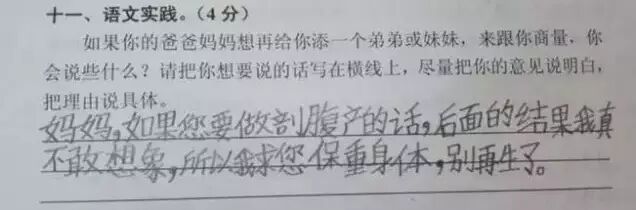 十一、语文实践。（4 分）
如果你的爸爸妈妈想再给你添一个弟弟或妹妹，来跟你商量，你
会说些什么？请把你想要说的话写在横线上，尽量把你的意见说明白，
把理由说具体。
妈妈，如果您要做剖腹产的话，后面的结果我真
不敢想象，所以我求您保重身体，别再生了。